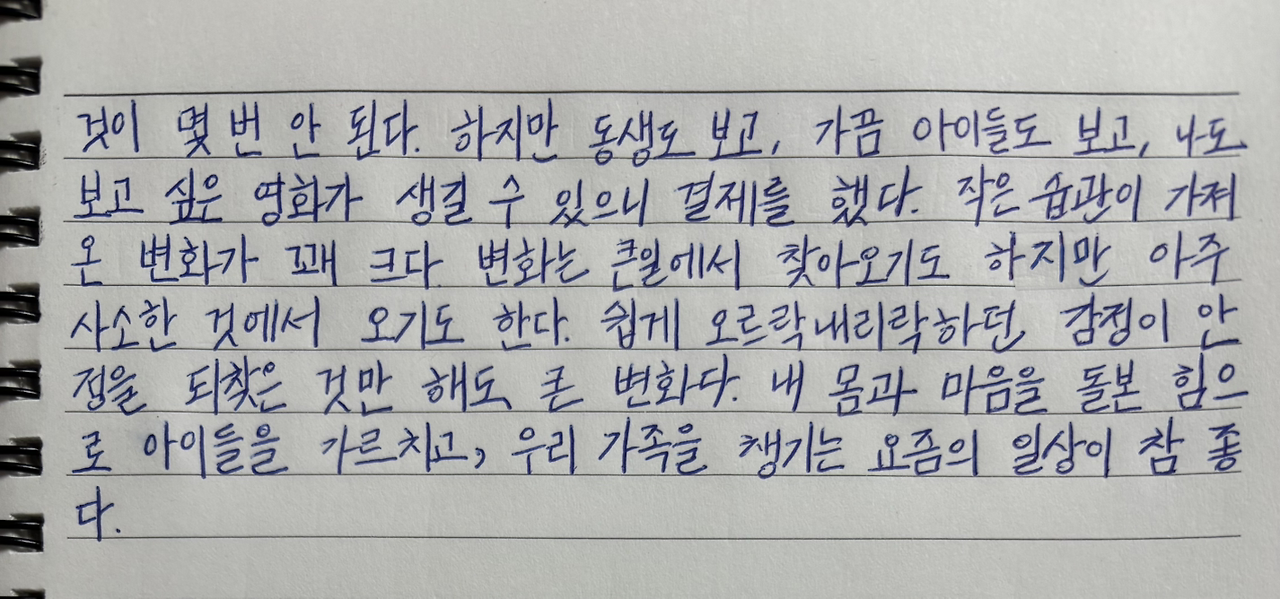 것이 몇 번 안 된다. 하지만 동생도 보고, 가끔 아이들도 보고, 나도
보고 싶은 영화가 생길 수 있으니 결제를 했다. 작은 습관이 가져
온 변화가 꽤 크다. 변화는 큰일에서 찾아오기도 하지만 아주
사소한 것에서 오기도 한다. 쉽게 오르락내리락하던 감정이 안
정을 되찾은 것만 해도 큰 변화다. 내 몸과 마음을 돌본 힘으
로 아이들을 가르치고, 우리 가족을 챙기는 요즘의 일상이 참 좋
다.